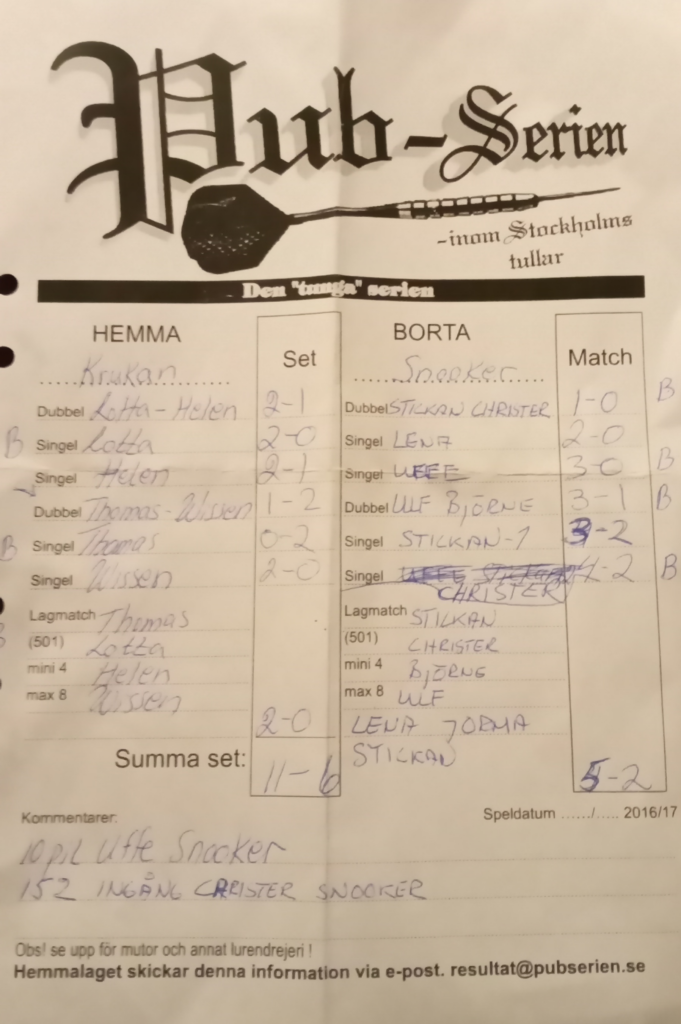 Pub-Serien
-inom Stockholms
tullar
Den "tunga" serien
HEMMA Set BORTA Match
Krukan Snooker
Dubbel Lotta-Helen 2-1 Dubbel STICKAN CHRISTER 1-0 B
B Singel Lotta 2-0 Singel LENA 2-0
Singel Helen 2-1 Singel UFFE 3-0 B
Dubbel Thomas-Wissen 1-2 Dubbel ULF BJÖRNE 3-1 B
B Singel Thomas 0-2 Singel STICKAN-1 3-2
Singel Wissen 2-0 Singel CHRISTER 4-2 B
Lagmatch Thomas Lagmatch STICKAN
(501) Lotta (501) CHRISTER
mini 4 Helen mini 4 BJÖRNE
max 8 Wissen max 8 ULF
2-0 LENA JORMA
Summa set: 11-6 STICKAN 5-2
Speldatum ....../...... 2016/17
Kommentarer:
10 pil Uffe Snooker
152 INGÅNG CHRISTER SNOOKER
Obs! se upp för mutor och annat lurendrejeri !
Hemmalaget skickar denna information via e-post. resultat@pubserien.se